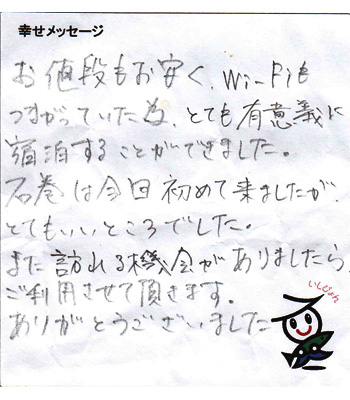 幸せメッセージ
お値段もお安く、Wi-Fiも
つながっていた為、とても有意義に
宿泊することができました。
石巻は今回初めて来ましたが、
とてもいいところでした。
また訪れる機会がありましたら、
ご利用させて頂きます。
ありがとうございました
いしぴょん